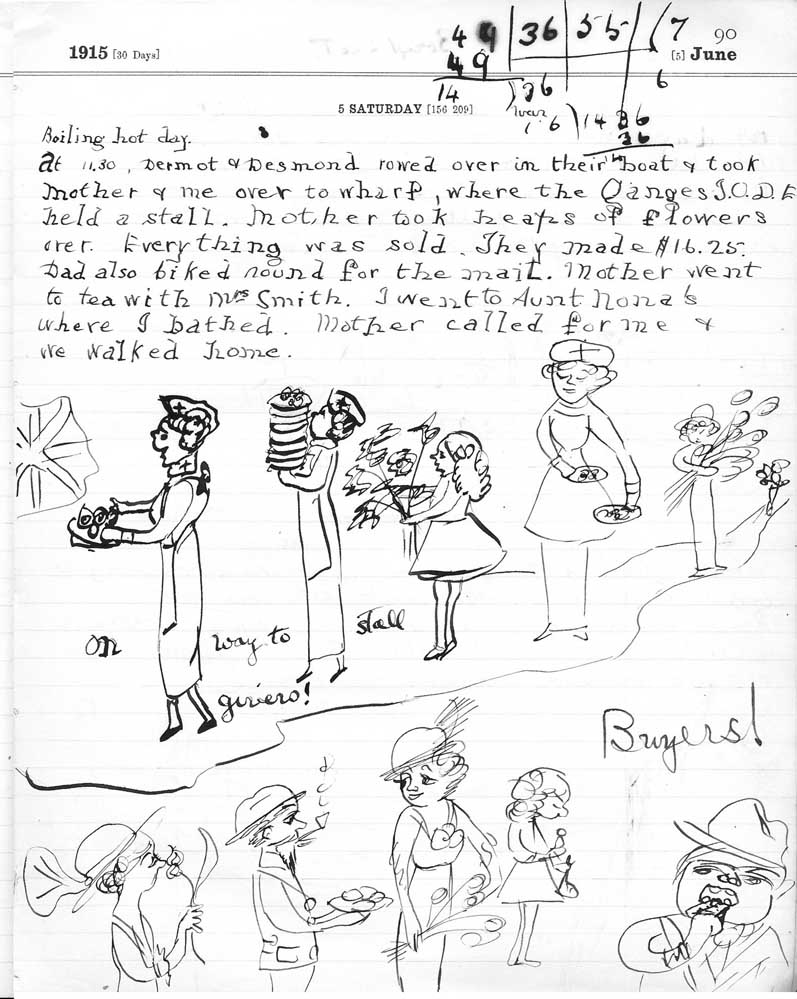 44 36 55 (7
90
1915 [30 Days]
49
[5] June
6
14
36
5 SATURDAY [156 209]
6
14 36
36
Boiling hot day.
At 11.30, Dermot & Desmond rowed over in their boat & took
Mother & me over to wharf, where the Ganges I.O.D.E
held a stall. Mother took heaps of flowers
over. Everything was sold. They made $16.25.
Dad also biked round for the mail. Mother went
to tea with Mrs Smith. I went to Aunt Nona's
where I bathed. Mother called for me &
we walked home.
on way to stall
givers!
Buyers!